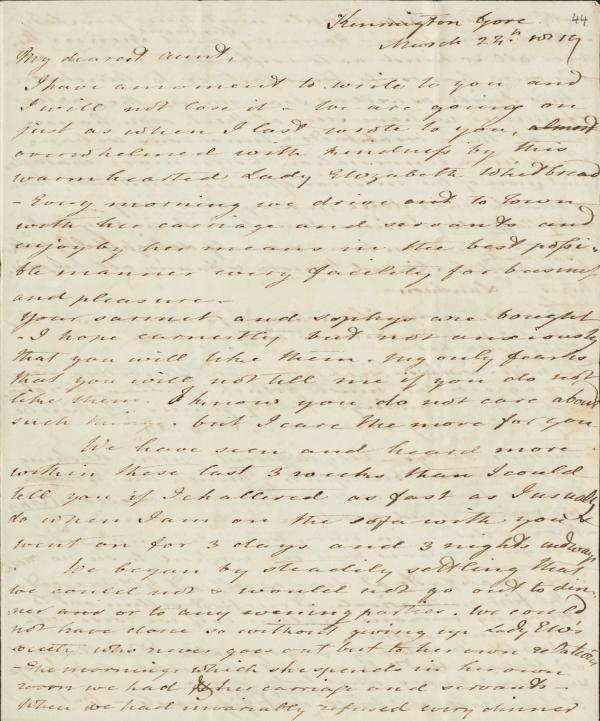 44
Kennington Gore
March 24th 1819
My dearest Aunt,
I have a moment to write to you and
I will not lose it - We are going on
just as when I last wrote to you, almost
overwhelmed with kindness by this
warmhearted Lady Elizabeth Whitbread
- Every morning we drive out to Town
with her carriage and servants and
enjoy by her means in the best possi-
ble manner every facility for business
and pleasure -
Your sarsnet and Sophys are bought
- I hope earnestly but not anxiously
that you will like them. My only fear is
that you will not tell me if you do not
like them. I know you do not care about
such things. but I care the more for you
We have seen and heard more
within these last 3 weeks than I could
tell you if I chattered as fast as I usually
do when I am on the sofa with you &
went on for 3 days and 3 nights
We began by steadily settling that
we could not & would not go out to din-
ner and or to any evening parties. We could
not have done so without giving up Lady Eliz's
society who never goes out but to her own relations
- The mornings which she spends in her own
room we had her carriage and servants -
When we had invariably refused every dinner